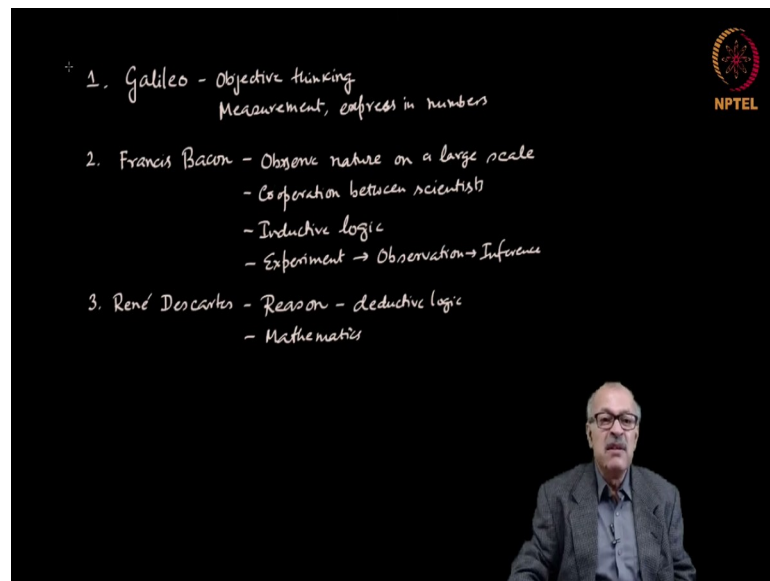 1. Galileo - Objective thinking
Measurement, express in numbers
2. Francis Bacon - Observe nature on a large scale
- Cooperation between scientists
- Inductive logic
- Experiment → Observation → Inference
3. René Descartes - Reason - deductive logic
- Mathematics
NPTEL